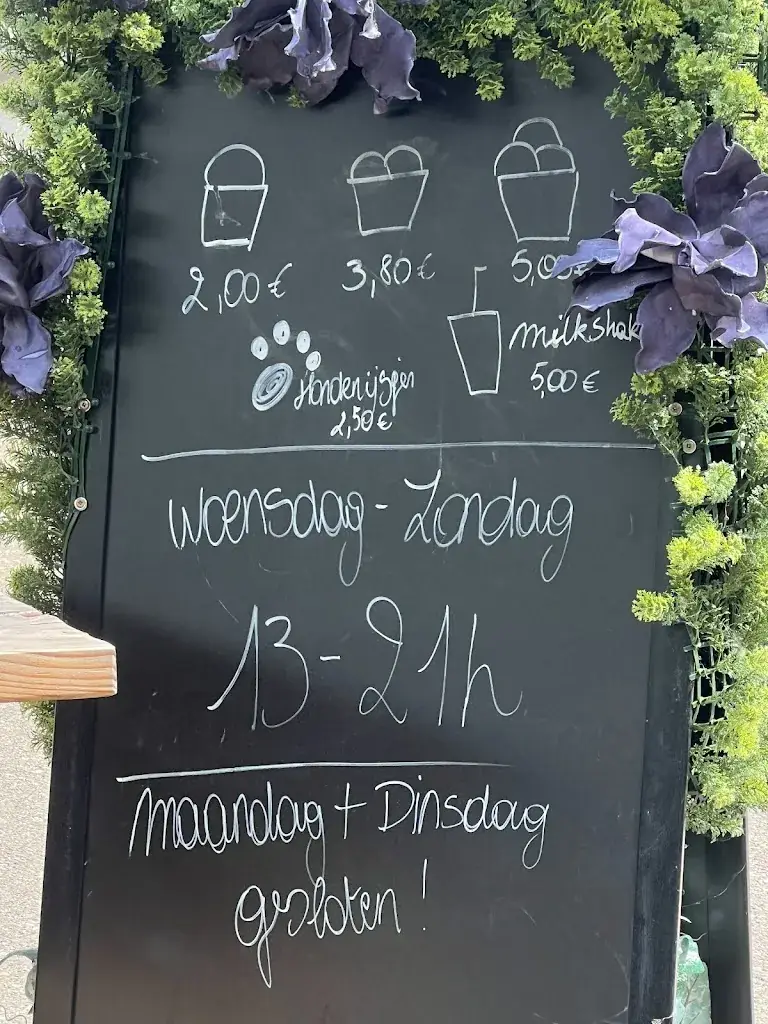 2,00 €
3,80 €
5,0
milkshak
5,00 €
Hondenijsjen
2,50 €
Woensdag - Zondag
13 - 21h
maandag + Dinsdag
gesloten !